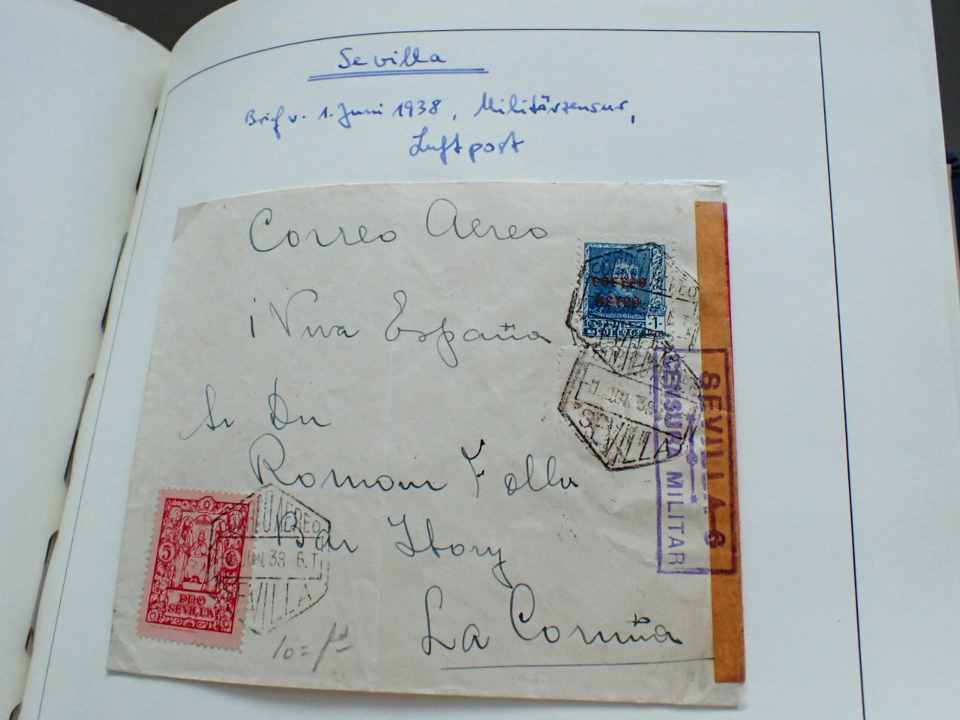 Sevilla
Brief v. 1. Juni 1938, Militärzensur,
Luftpost
Correo Aereo
¡ Viva España
CORREO
AEREO
1
Sr Dn
Roman Folla
Bar Story
La Coruña
SEVILLA
1 JUN. 38
SEVILLA
SEVILLA - 6
CENSURA MILITAR
CORREO AEREO
JUN. 38 6.T
SEVILLA
5
PRO
SEVILLA
10 =